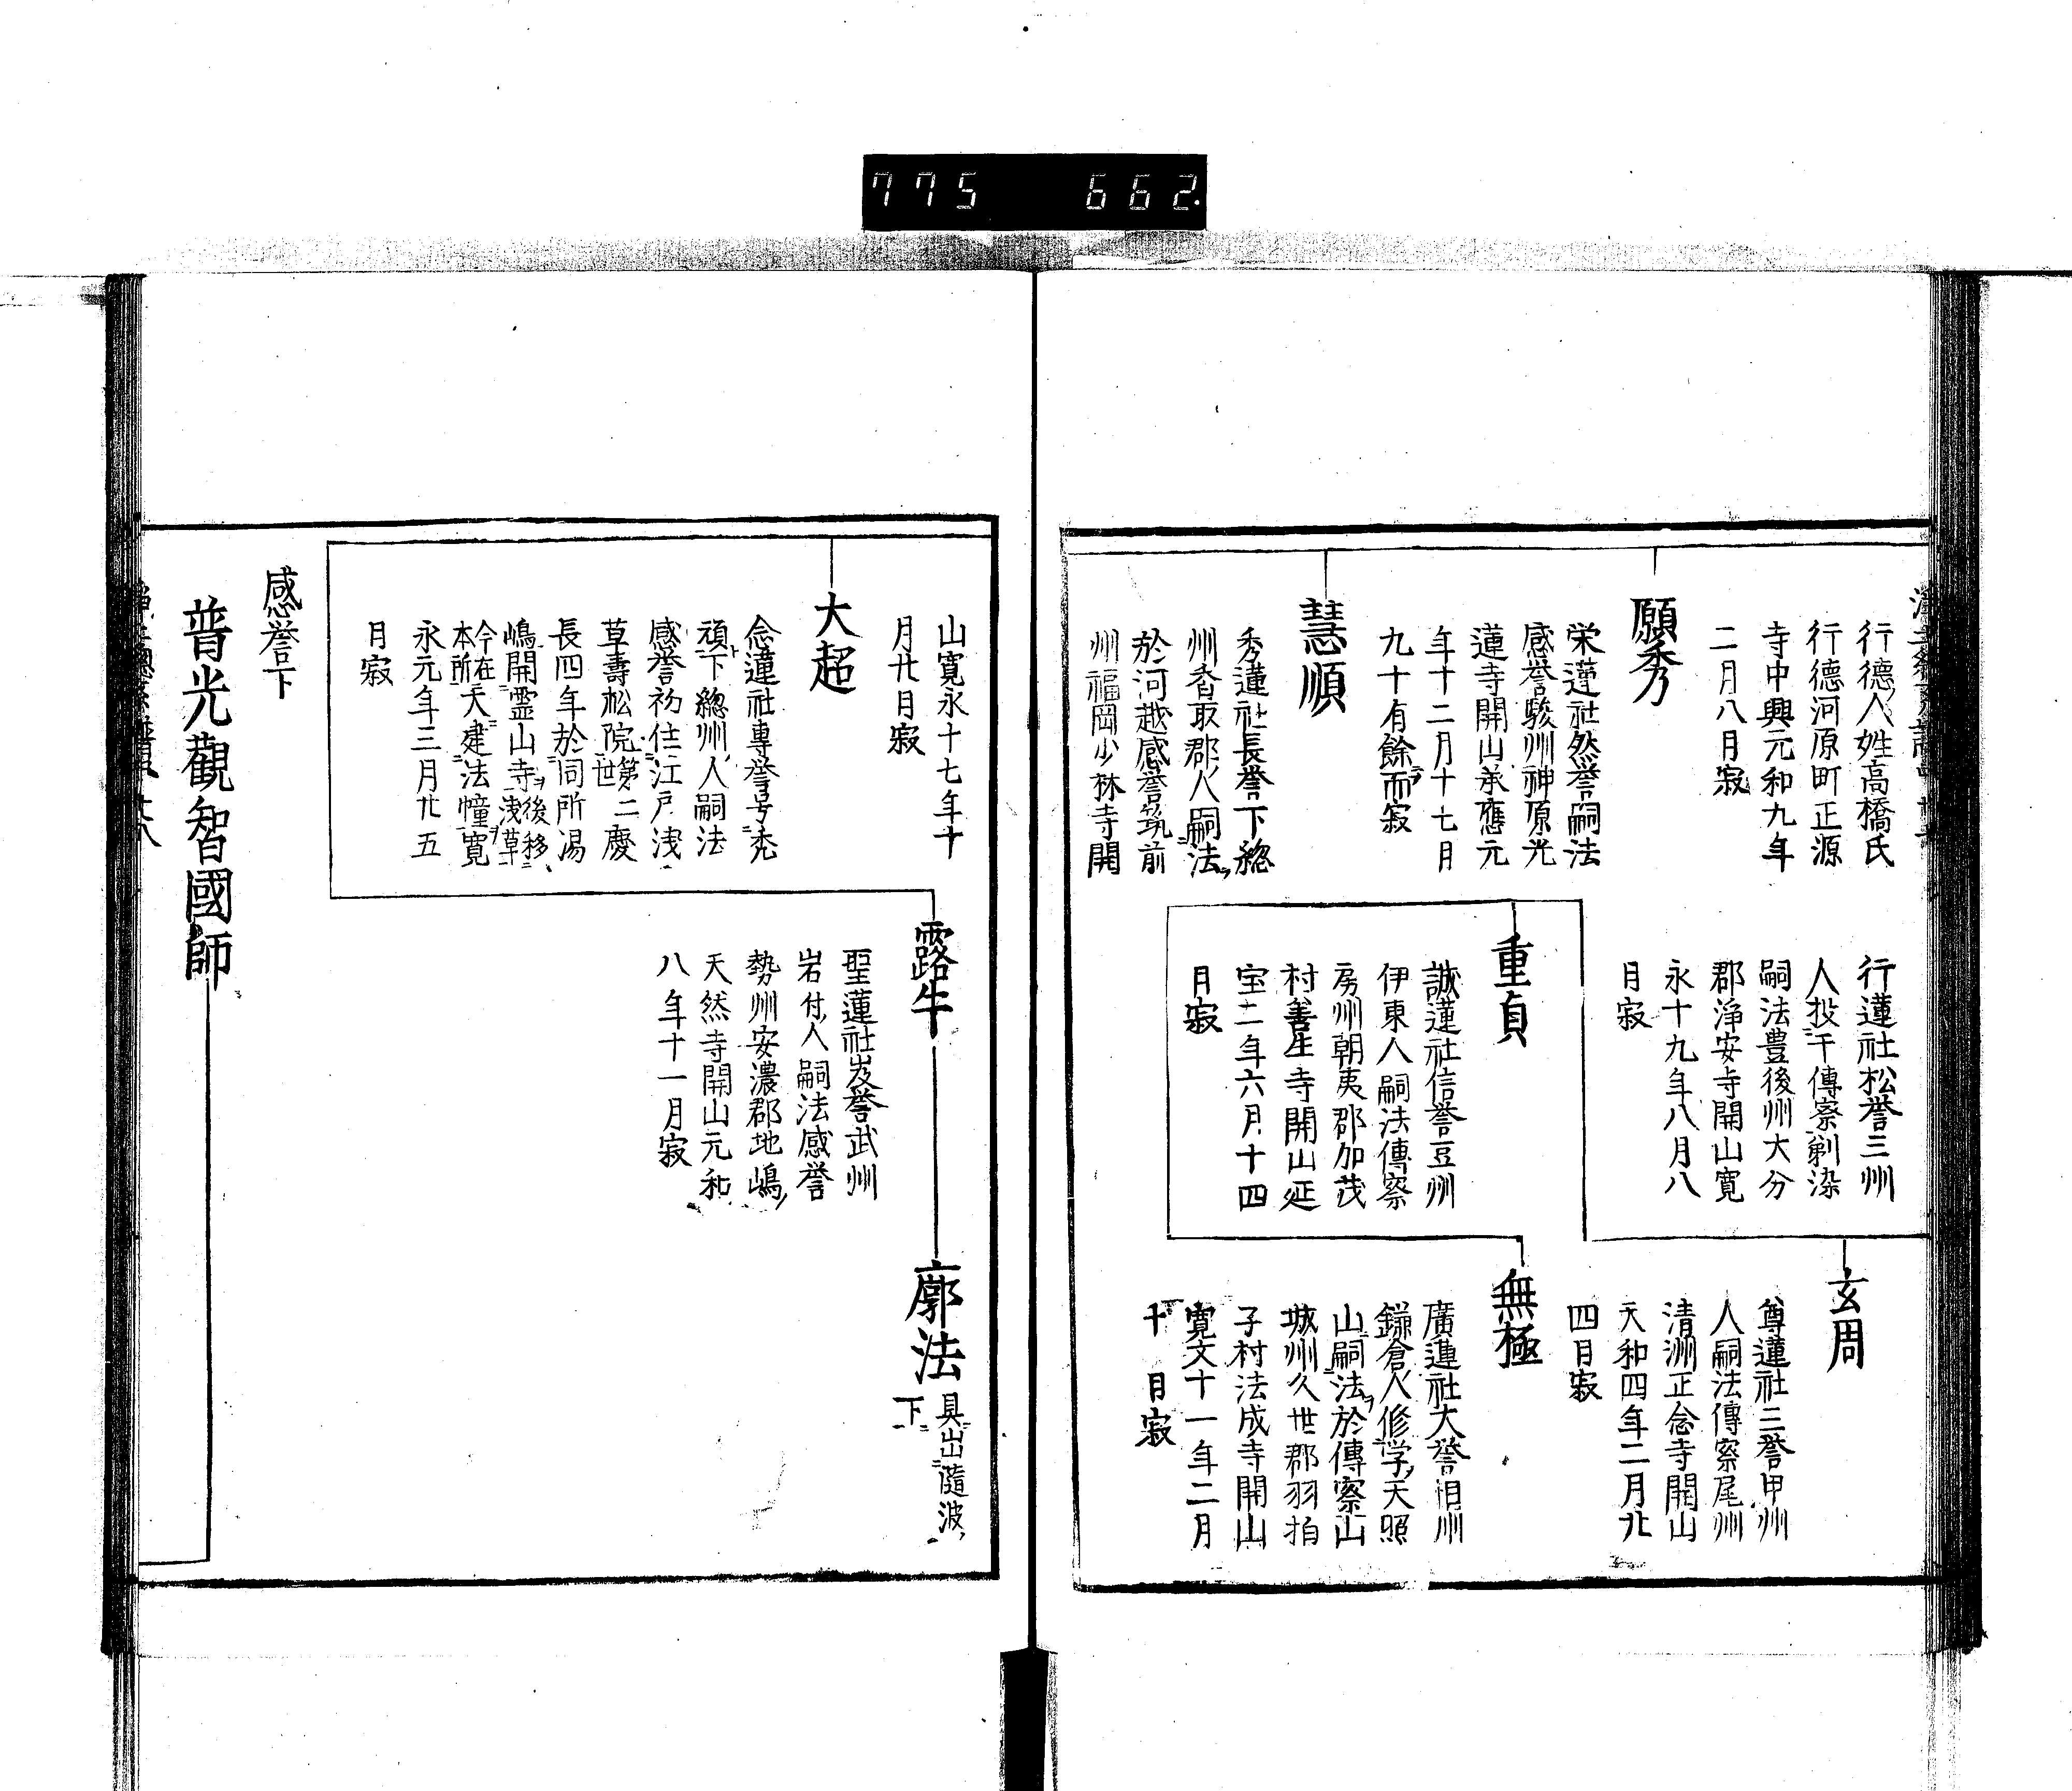 775 662.
行德人姓高橋氏
行德河原町正源
寺中興元和九年
二月八月寂
願秀
栄蓮社然誉嗣法
感誉駿州神原光
蓮寺開山承應元
年十二月十七月
九十有餘而寂
慧順
秀蓮社長誉下総
州香取郡人嗣法
於河越感誉筑前
州福岡少林寺開
行蓮社松誉三州
人投于傳察剃染
嗣法豊後州大分
郡淨安寺開山寛
永十九年八月八
月寂
重貞
誠蓮社信誉豆州
伊東人嗣法傳察
房州朝夷郡加茂
村善生寺開山延
宝二年六月十四
月寂
玄周
尊蓮社三誉甲州
人嗣法傳察尾州
清洲正念寺開山
天和四年二月廿
四月寂
無極
廣蓮社大誉相州
鎌倉人修学天照
山嗣法於傳察山
城州久世郡羽拍
子村法成寺開山
寛文十一年二月
十月寂
山寛永十七年十
月廿月寂
大超
念蓮社專誉号禿
頑下總州人嗣法
感誉初住江戸浅
草壽松院第二世慶
長四年於同所湯
嶋開霊山寺後移浅草
今在本所天建法幢寛
永元年三月廿五
月寂
露牛
聖蓮社岌誉武州
岩付人嗣法感誉
勢州安濃郡地嶋
天然寺開山元和
八年十一月寂
廓法
具出隨波
下
感誉下
普光觀智國師